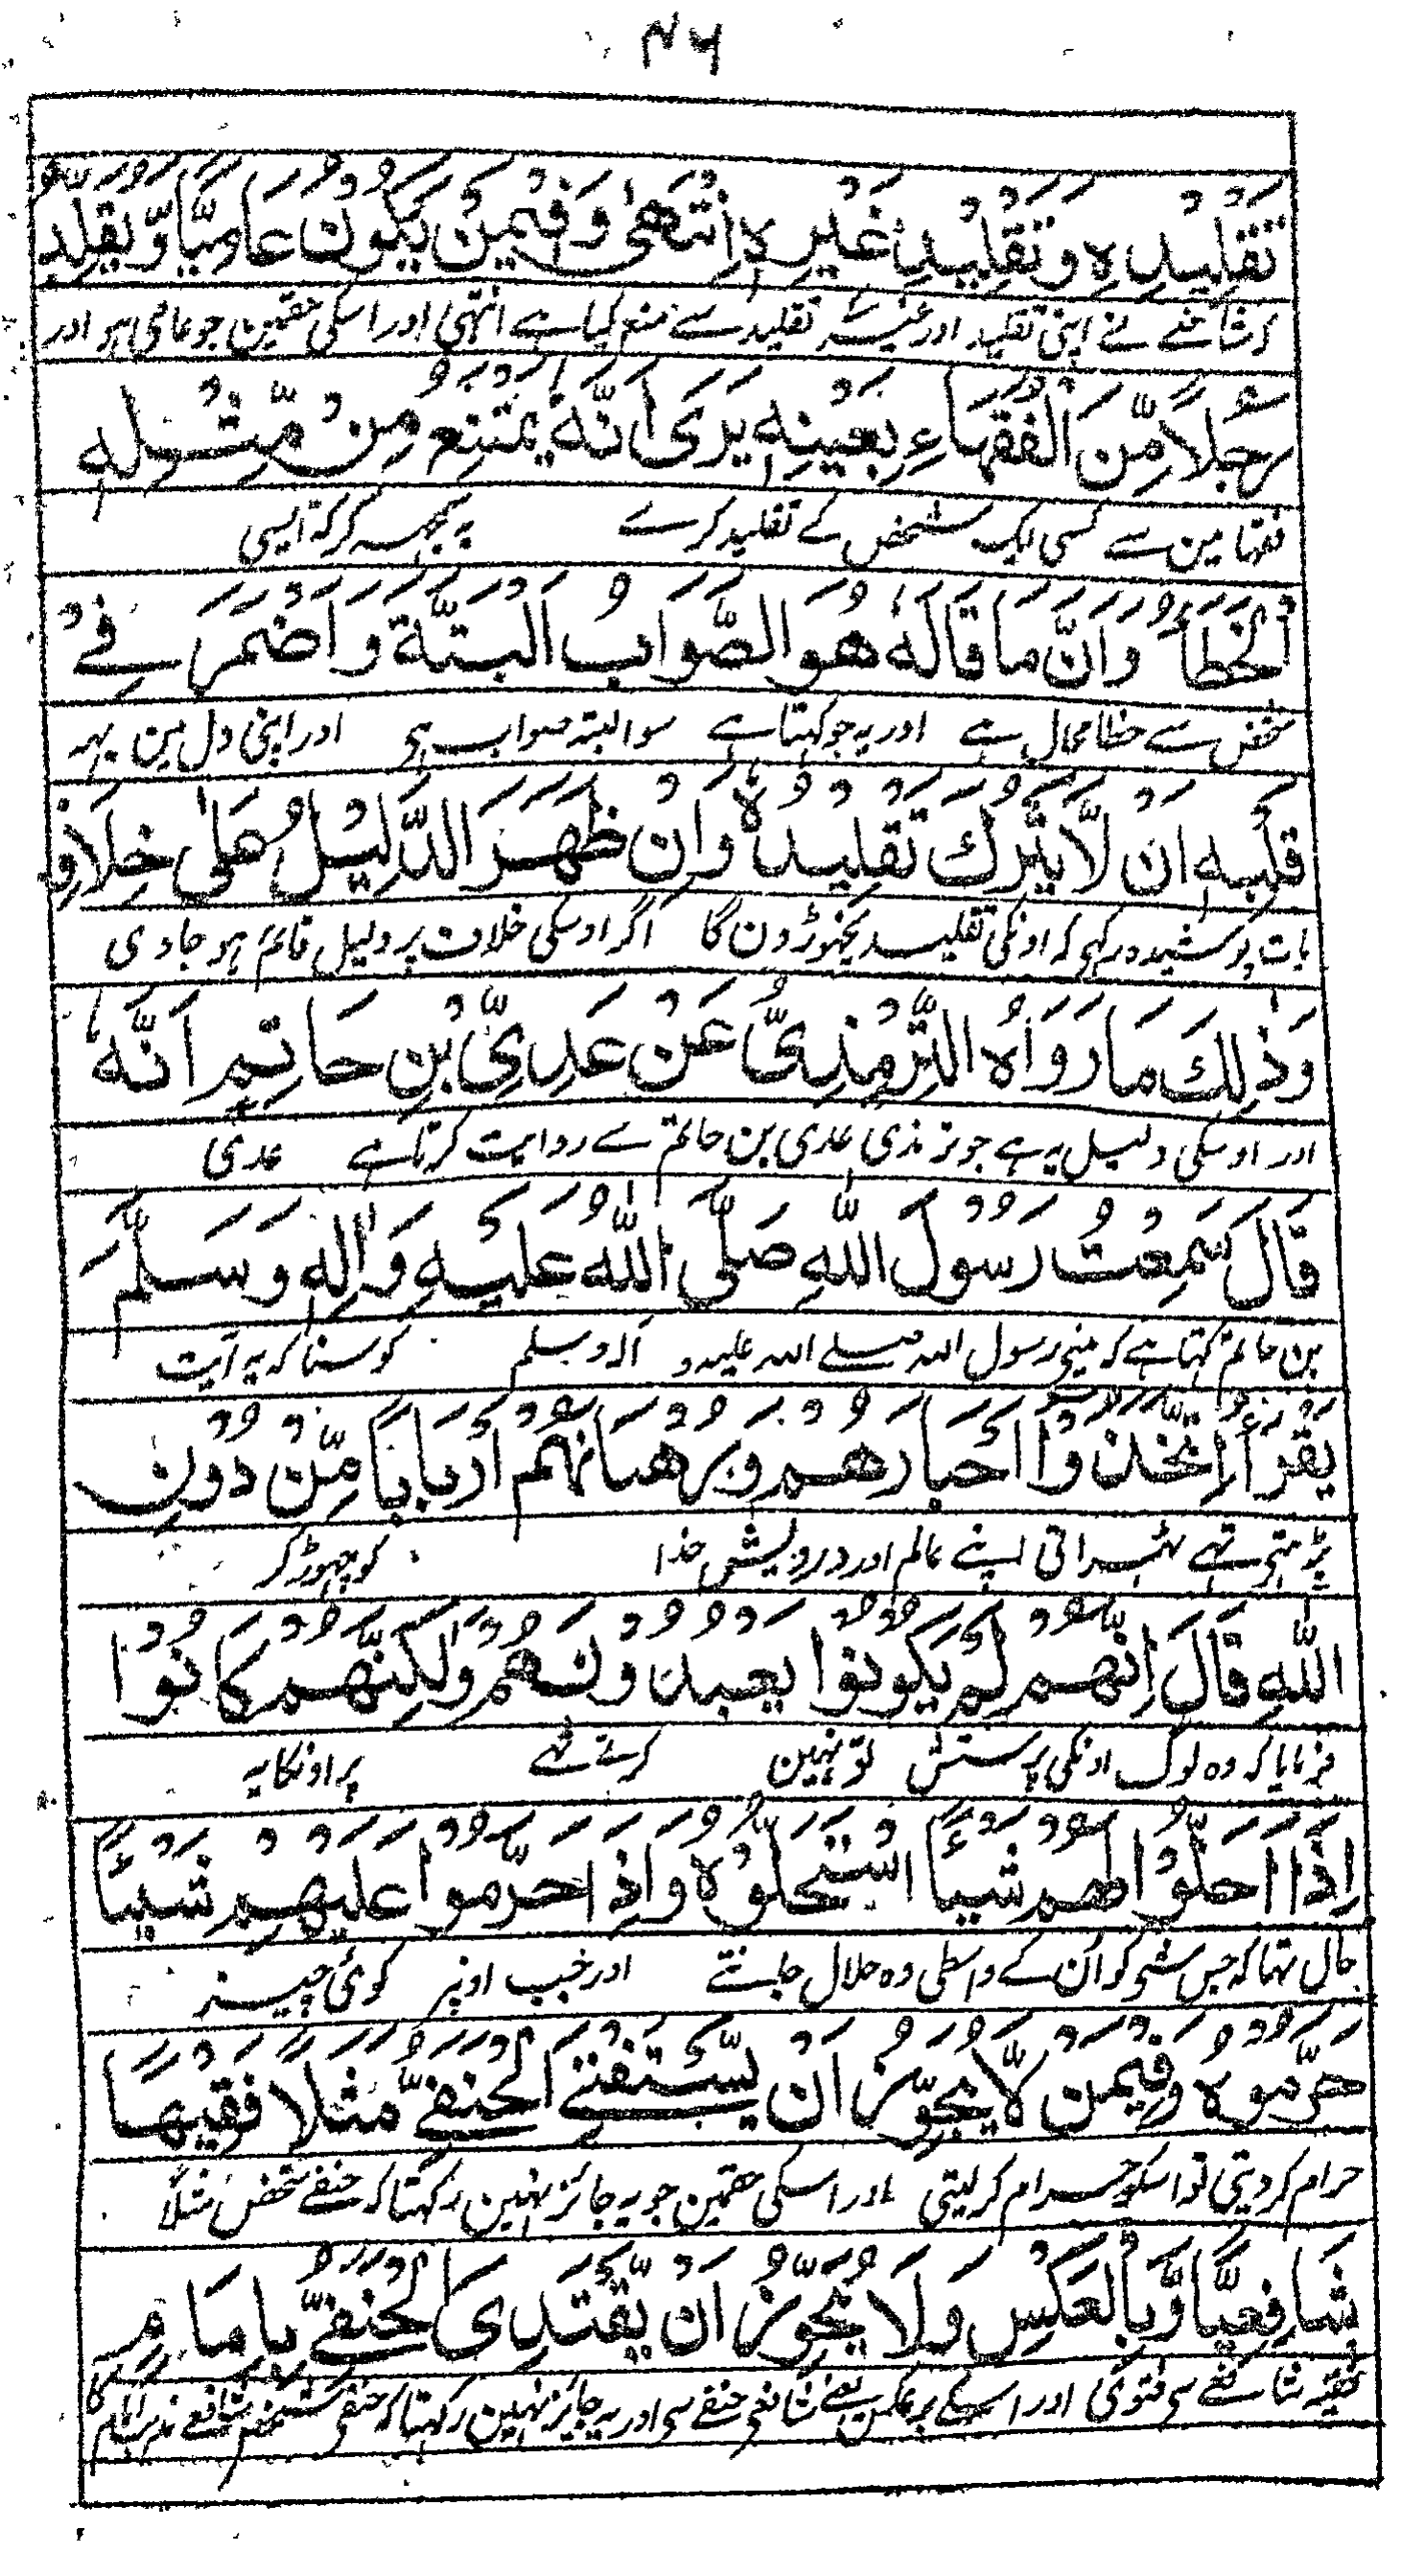 ۴۶
تَقْلِيْدِهٖ وَتَقْلِيْدِ غَيْرِهٖ اِنْتَهٰى وَفِيْمَنْ يَّكُوْنُ عَامِيًّا وَّيُقَلِّدُ
کہ شافعے نے اپنی تقلید اور غیرکے تقلید سے منع کیا ہے انتہی اور اسکی حقمین جو عامی ہو اور
رَجُلًا مِّنَ الْفُقَهَاءِ بِعَيْنِهٖ يَرٰى اَنَّهٗ يَمْتَنِعُ مِنْ مِّثْلِهِ
فقہا مین سے کسی ایک شخص کے تقلید کرے یہ سمجھ کر کہ ایسی
الْخَطَأُ وَاَنَّ مَا قَالَهٗ هُوَ الصَّوَابُ الْبَتَّةَ وَاَضْمَرَ فِيْ
شخص سے خطا محال ہے اور یہ جو کہتا ہے سو البتہ صواب ہی اور اپنی دل مین یہہ
قَلْبِهٖ اَنْ لَّا يَتْرُكَ تَقْلِيْدَهٗ وَاِنْ ظَهَرَ الدَّلِيْلُ عَلٰى خِلَافِهٖ
بات پوشیدہ رکہی کہ اونکی تقلید نچھوڑون گا اگر اوسکی خلاف پر دلیل قائم ہو جاوی
وَذٰلِكَ مَا رَوَاهُ التِّرْمِذِيُّ عَنْ عَدِيِّ بْنِ حَاتِمٍ اَنَّهٗ
اور اوسکی دلیل یہ ہے جو ترمذی عدی بن حاتم سے روایت کرتا ہے عدی
قَالَ سَمِعْتُ رَسُوْلَ اللّٰهِ صَلَّى اللّٰهُ عَلَيْهِ وَاٰلِهٖ وَسَلَّمَ
بن حاتم کہتا ہے کہ مینی رسول اللہ صلے اللہ علیہ و آلہ وسلم کو سنا کہ یہ آیت
يَقْرَأُ اِتَّخَذُوْا اَحْبَارَهُمْ وَرُهْبَانَهُمْ اَرْبَابًا مِّنْ دُوْنِ
پڑہتی تہے ٹہراتی اپنے عالم اور درویش خدا کو چہوڑ کر
اللّٰهِ قَالَ اِنَّهُمْ لَمْ يَكُوْنُوْا يَعْبُدُوْنَهُمْ وَلٰكِنَّهُمْ كَانُوْا
فرمایا کہ وہ لوگ اونکی پرستش تو نہین کرتے تہے پر اونکا یہ
اِذَا اَحَلُّوْا لَهُمْ شَيْئًا اِسْتَحَلُّوْهُ وَاِذَا حَرَّمُوْا عَلَيْهِمْ شَيْئًا
حال تہا کہ جس شی کو ان کے واسطی وہ حلال جانتے اور جب اونپر کوئی چیز
حَرَّمُوْهُ وَفِيْمَنْ لَّا يُجَوِّزُ اَنْ يَّسْتَفْتِيَ الْحَنَفِيُّ مَثَلًا فَقِيْهًا
حرام کر دیتی تو اسکو حرام کر لیتی اور اسکی حقمین جو یہ جائز نہین رکہتا کہ حنفے شخص مثلاً
شَافِعِيًّا وَّبِالْعَكْسِ وَلَا يُجَوِّزُ اَنْ يَّقْتَدِيَ الْحَنَفِيُّ بِاِمَامٍ
فقیہ شافعے سی فتوی اور اسکے برعکس یعنے شافعی حنفے سی اور یہ جایز نہین رکہتا کہ حنفی شخص شافعے امام کا